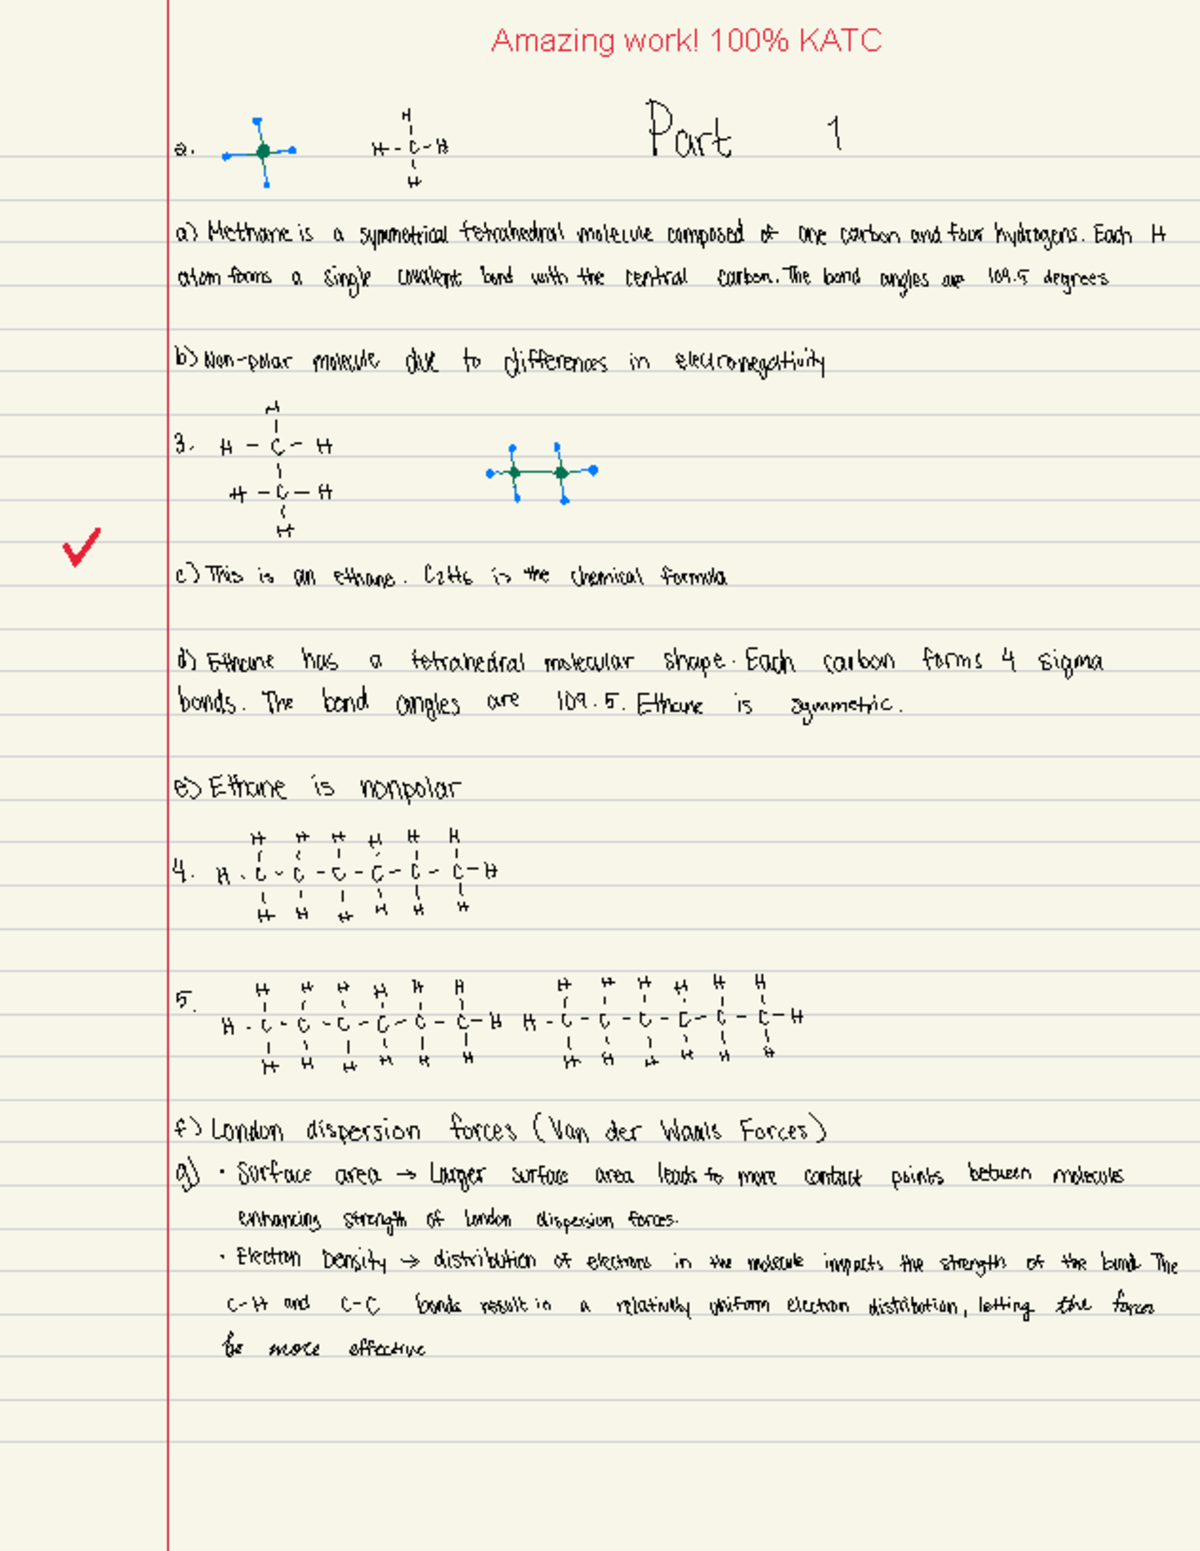 Amazing work! 100% KATC
Part 1
2.
H
H - C - H
H
a) Methane is a symmetrical tetrahedral molecule composed of one carbon and four hydrogens. Each H
atom forms a single covalent bond with the central carbon. The bond angles are 109.5 degrees
b) Non-polar molecule due to differences in electronegativity
H
3. H - C - H
H - C - H
H
c) This is an ethane. C2H6 is the chemical formula
d) Ethane has a tetrahedral molecular shape. Each carbon forms 4 sigma
bonds. The bond angles are 109.5. Ethane is symmetric.
e) Ethane is nonpolar
H H H H H H
4. H - C - C - C - C - C - C - H
H H H H H H
5.
H H H H H H H H H H H H
H - C - C - C - C - C - C - H H - C - C - C - C - C - C - H
H H H H H H H H H H H H
f) London dispersion forces (Van der Waals Forces)
g) • Surface area → Larger surface area leads to more contact points between molecules
enhancing strength of london dispersion forces.
• Electron Density → distribution of electrons in the molecule impacts the strength of the bond. The
C-H and C-C bonds result in a relatively uniform electron distribution, letting the forces
be more effective